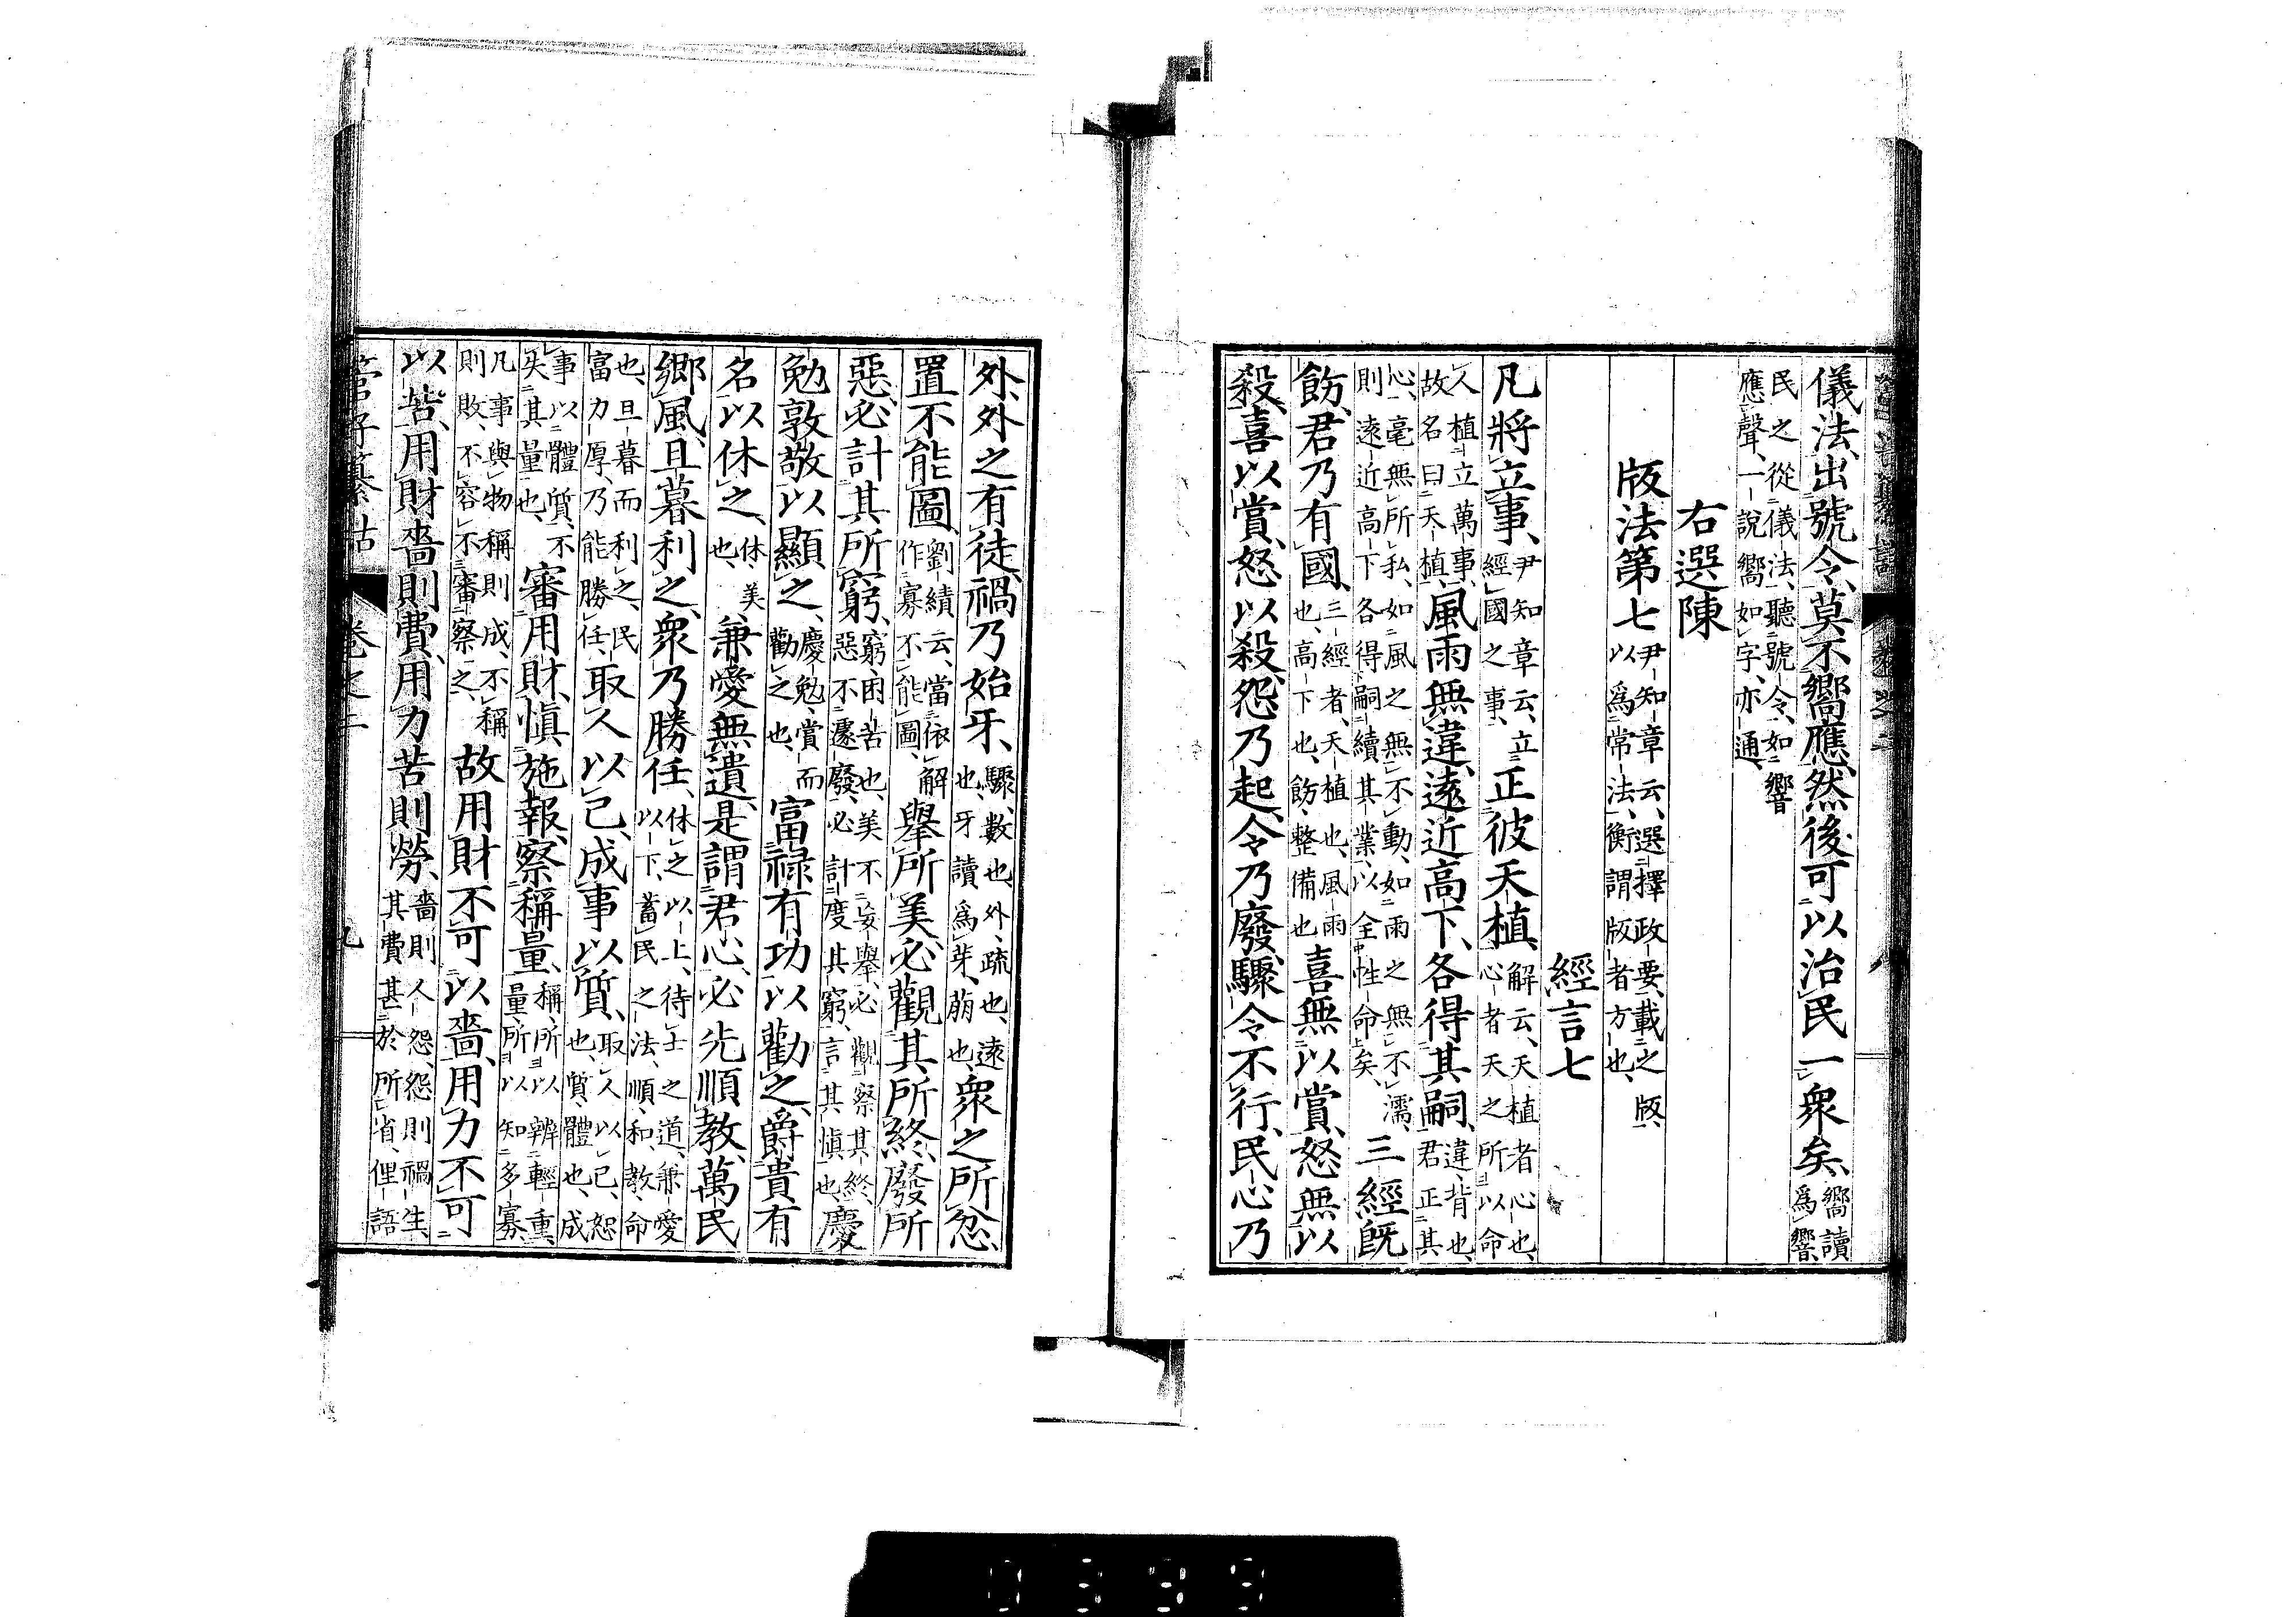 儀法、出號令、莫不嚮應、然後可以治民一衆矣、嚮讀爲響、
民之從儀法、聽號令、如響應聲、一說嚮如字、亦通、
右選陳
版法第七尹知章云、選擇政要、載之版、以爲常法、衡謂版者方也、
經言七
凡將立事、尹知章云、立經國之事、正彼天植、解云、天植者心也、心者天之所以命
人植立萬事、故名曰天植、風雨無違、遠近高下、各得其嗣、違、背也、君正其
心、毫無所私、如風之無不動、如雨之無不濡、則遠近高下各得嗣續其業、以全性命矣、三經既
飭、君乃有國、三經者、天植也、風雨也、高下也、飭、整備也喜無以賞、怒無以
殺、喜以賞、怒以殺、怨乃起、令乃廢、驟令不行、民心乃
外、外之有徒、禍乃始牙、驟、數也、外、疏也、遠也、牙讀爲芽、萠也、衆之所忿、
置不能圖、劉績云、當依解作寡不能圖、舉所美、必觀其所終、廢所
惡、必計其所窮、窮、困苦也、美不妄舉、必觀察其終、惡不遽廢、必計度其窮、言其愼也、慶
勉敦敬以顯之、慶勉、賞而勸之也、富祿有功以勸之、爵貴有
名以休之、休、美也、兼愛無遺、是謂君心、必先順教、萬民
鄉風、旦暮利之、衆乃勝任、休之以上、待士之道、兼愛以下、蓄民之法、順、和、教、命
也、旦暮而利之、民富力厚、乃能勝任、取人以己、成事以質、取人以己、恕也、質、體也、成
事以體質、不失其量也、審用財、愼施報、察稱量、稱、所以辨輕重、量、所以知多寡、
凡事與物稱則成、不稱則敗、不容不審察之、故用財不可以嗇、用力不可
以苦、用財嗇則費、用力苦則勞、嗇則人怨、怨則禍生、其費甚於所省、俚語
管子纂詁　卷之二　九